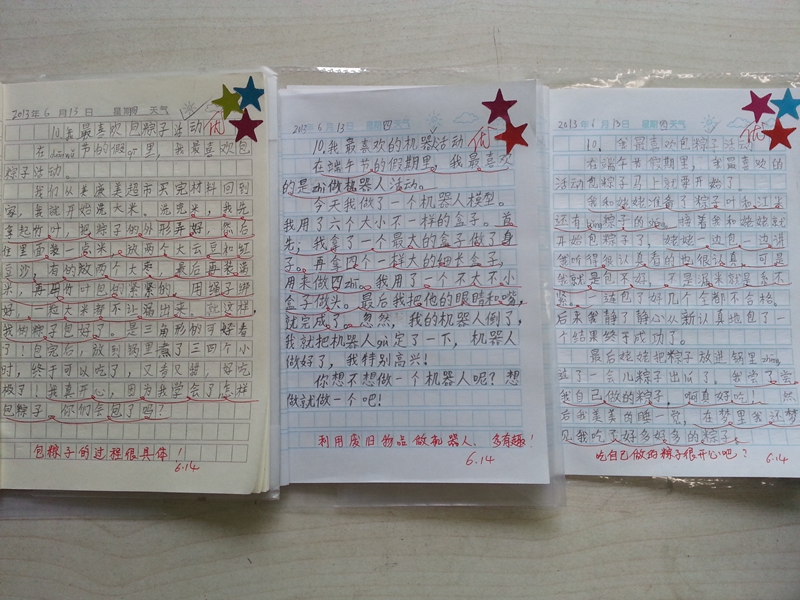 2013年6月13日 星期四 天气
10.我最喜欢包粽子活动 优
在duānwǔ节的假qī里,我最喜欢包
粽子活动。
我们从来康美超市买完材料回到
家,我就开始洗大米。洗完米,我先
拿起竹叶,把粽子的外形弄好,然后
在里面装一点米,放两个大云豆和红
豆沙,有的放两个大枣,最后再装满
米,再用竹叶包的紧紧的,用绳子绑
好,一粒大米都不让漏出来。就这样,
我的粽子包好了。是三角形的可好看
了!包完后,放到锅里煮了三四个小
时,终于可以吃了,又香又甜,好吃
极了!我真开心,因为我学会了怎样
包粽子,你们会包了吗?
包粽子的过程很具体!
6.14
2013年6月13 星期四天气
10.我最喜欢的机器人活动 优
在端午节的假期里,我最喜欢
的是zhì做机器人活动。
今天我做了一个机器人模型。
我用了六个大小不一样的盒子。首
先,我拿了一个最大的盒子做了身
子。再拿四个一样大的细长盒子,
用来做四zhī。我用了一个不大不小
盒子做头。最后我把他的眼睛和嘴,
就完成了。忽然,我的机器人倒了,
我就把机器人gù定了一下,机器人
做好了,我特别高兴!
你想不想做一个机器人呢?想
做就做一个吧!
利用废旧物品做机器人,多有趣!
6.14
2013年6月13日 星期四 天气
10.我最喜欢包粽子活动 优
在端午节假期里,我最喜欢的
活动包粽子马上就要开始了。
我和姥姥准备了粽子叶和江米
还有bǎng粽子的shéng,接着我和姥姥就
开始包粽子了,姥姥一边包一边讲
我学得很认真看的也很认真,可是
我就是包不好,不是漏米就是系不
紧,一连包了好几个全都不合格,
后来我静了静心从新认真地包了一
个结果终于成功了。
最后姥姥把粽子放进锅里zhēng
过了一会儿粽子出瓜了。我尝了尝
我自己做的粽子,啊真好吃!然
后我美美的睡一觉,在梦里我还梦
见我吃了好多好多的粽子。
吃自己做的粽子很开心吧?
6.14